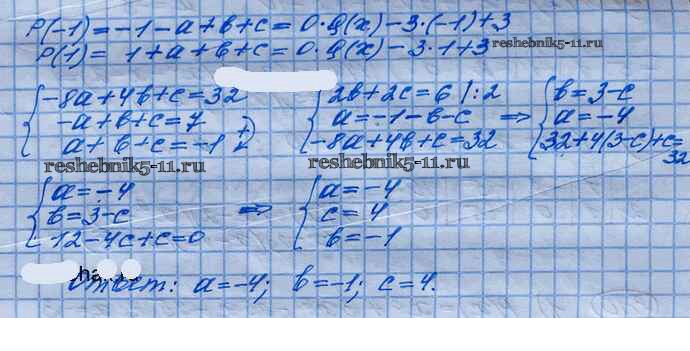 P(-1) = -1 - a + b + c = 0·Q(x) - 3·(-1) + 3
P(1) = 1 + a + b + c = 0·Q(x) - 3·1 + 3
reshebnik5-11.ru
-8a + 4b + c = 32
-a + b + c = 7
a + b + c = -1 +)
2b + 2c = 6 /: 2
a = -1 - b - c =>
-8a + 4b + c = 32
b = 3 - c
a = -4
32 + 4(3 - c) + c =
32
reshebnik5-11.ru
reshebnik5-11.ru
a = -4
b = 3 - c =>
12 - 4c + c = 0
a = -4
c = 4
b = -1
Ответ: a = -4; b = -1; c = 4.